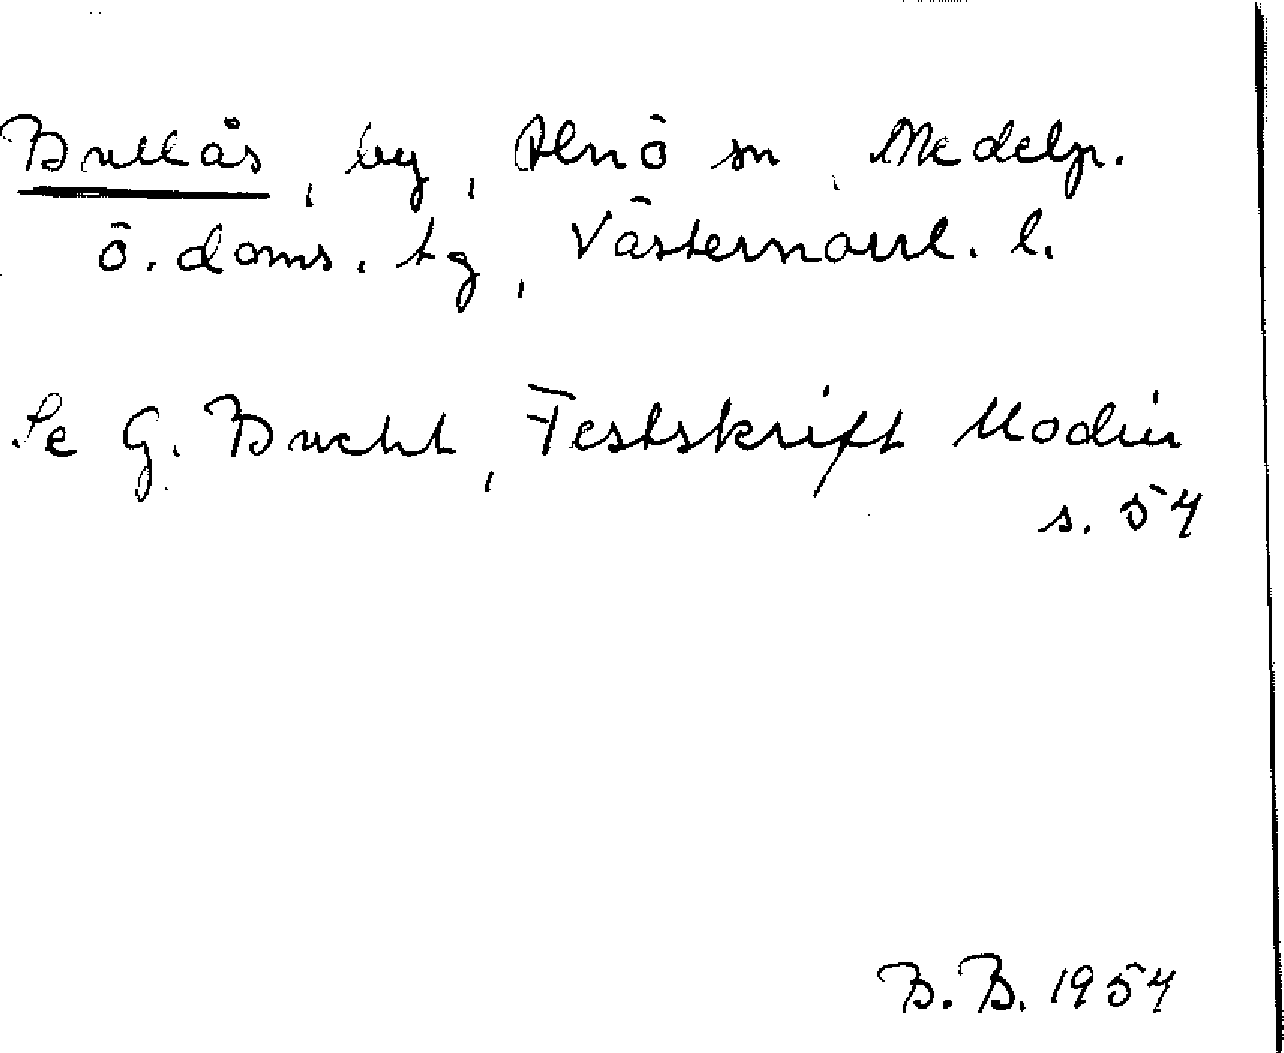 Bullås, by, Alnö sn, Medelp.
ö. doms. tg, Västernorrl. l.
Se G. Bucht, Festskrift Modin
s. 54
B. B. 1954